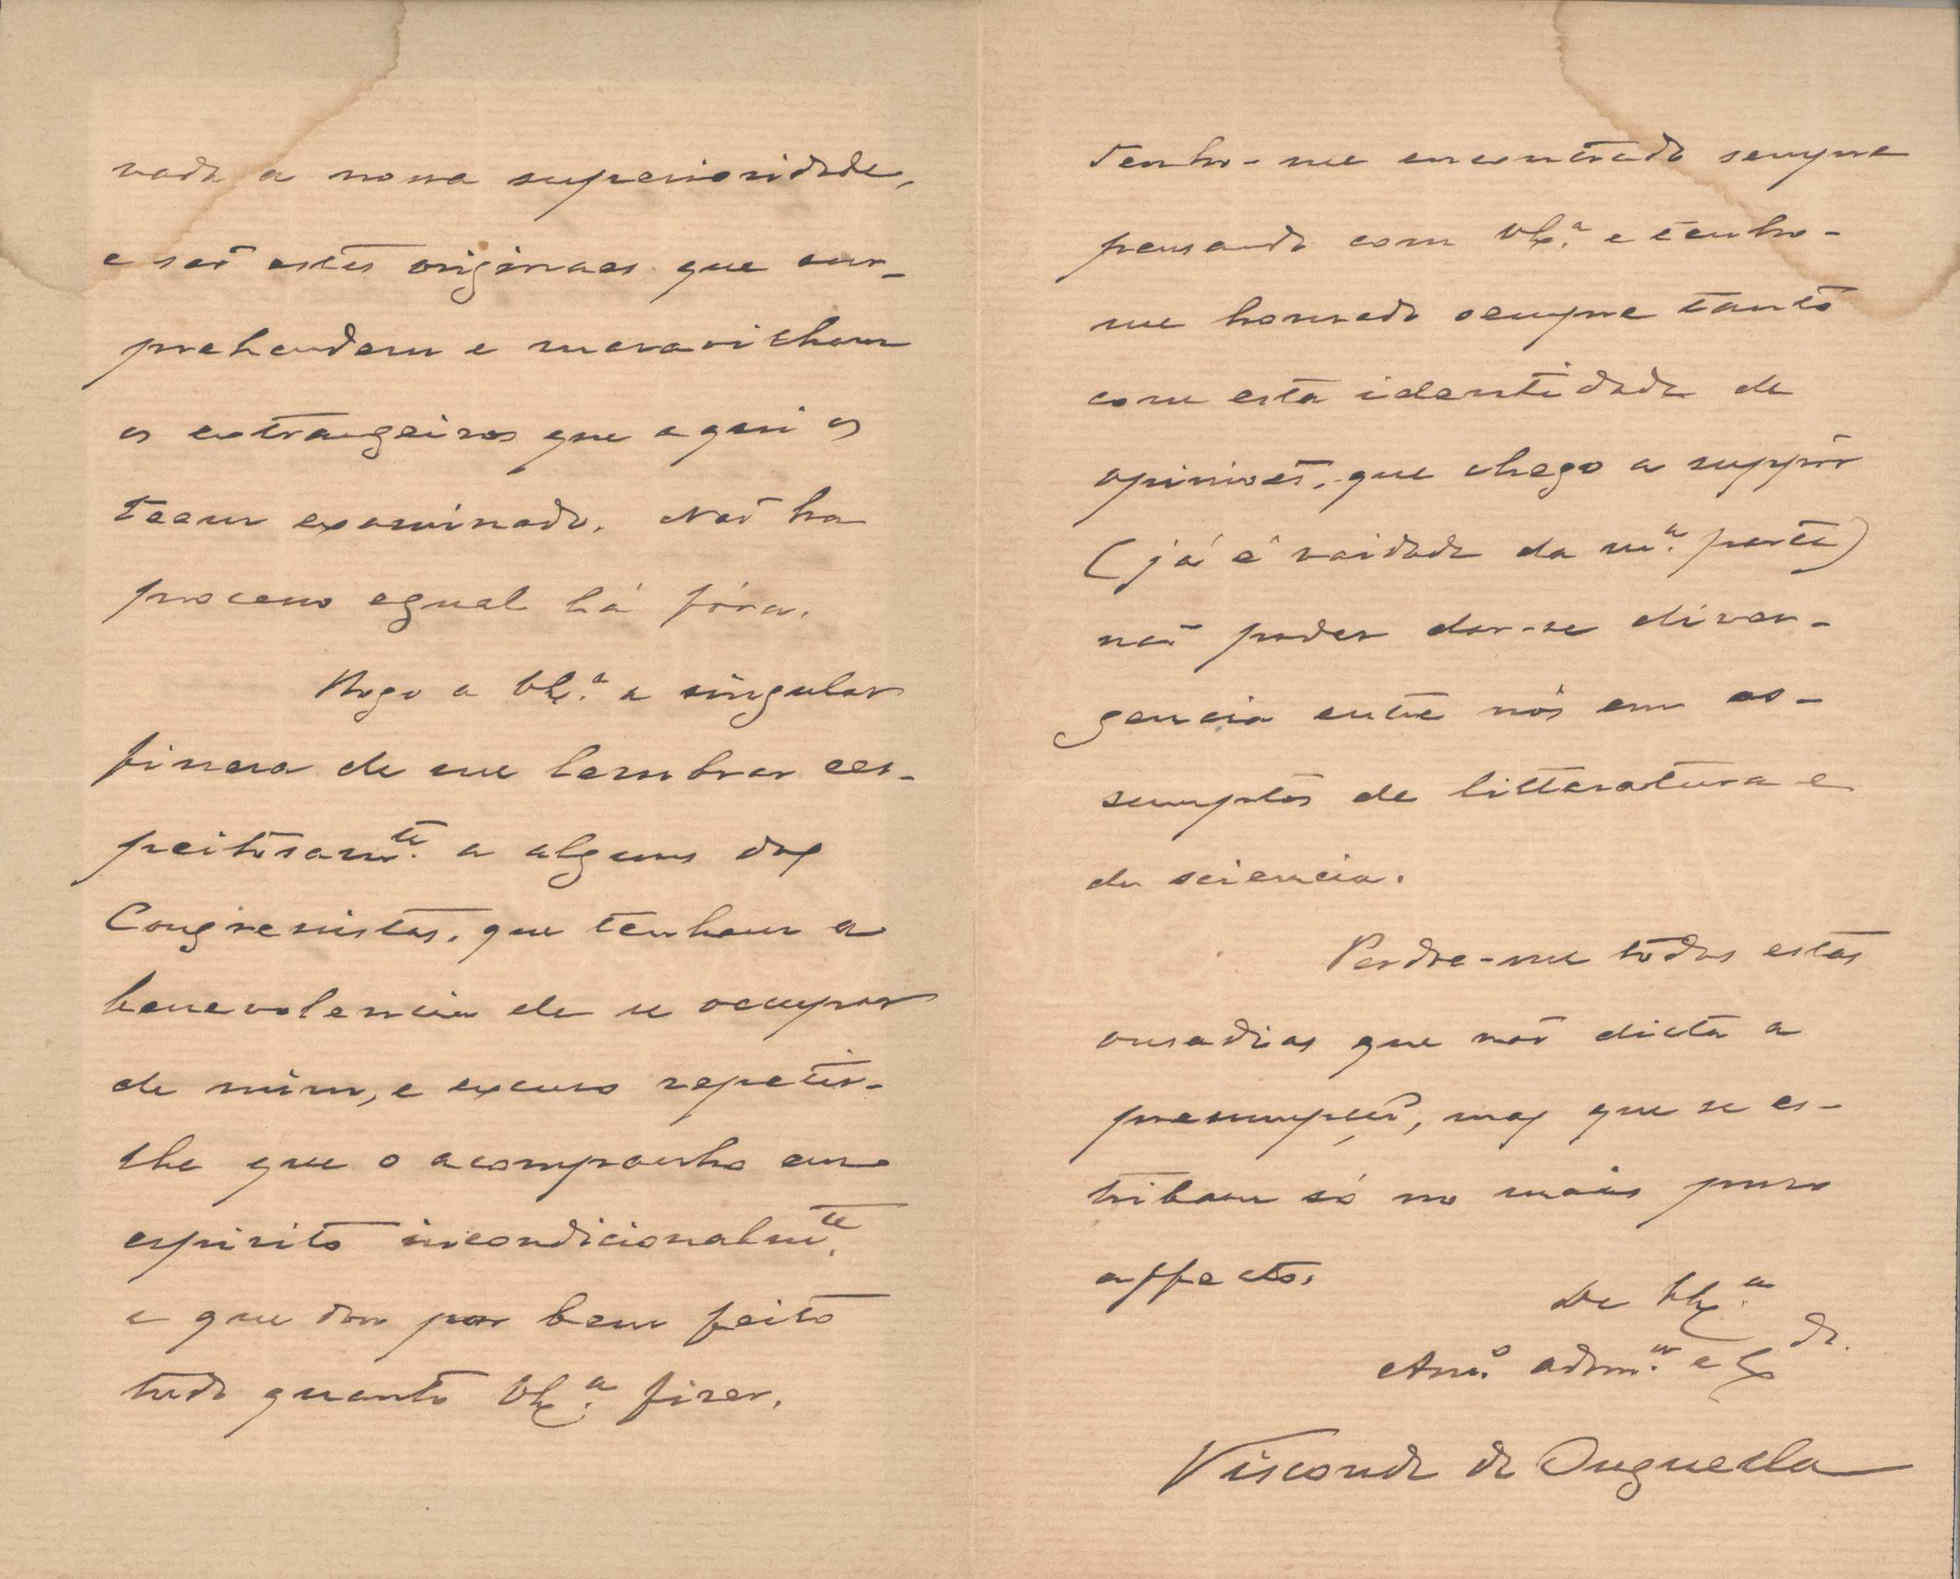 vada a nossa superioridade,
e são estes originaes que sur-
prehendem e maravilham
os extrangeiros que aqui os
teem examinado. Não ha
processo egual lá fóra.
Rogo a VEx.ª a singular
fineza de me lembrar res-
peitosam.te a alguns dos
Congressistas, que tenham a
benevolencia de se occupar
de mim, e excuso repetir-
lhe que o acompanho em
espirito incondicionalm.te
e que dou por bem feito
tudo quanto VEx.ª fizer.
Tenho-me encontrado sempre
pensando com VEx.ª e tenho-
me honrado sempre tanto
com esta identidade de
opiniões, que chego a suppôr
(já é vaidade da m.ª parte)
não poder dar-se diver-
gencia entre nós em as-
sumptos de litteratura e
de sciencia.
Perdoe-me todas estas
ousadias que não dicta a
presumpção, mas que se es-
tribam só no mais puro
affecto.
De VEx.ª
Am.º adm.or e
Visconde de Ouguella